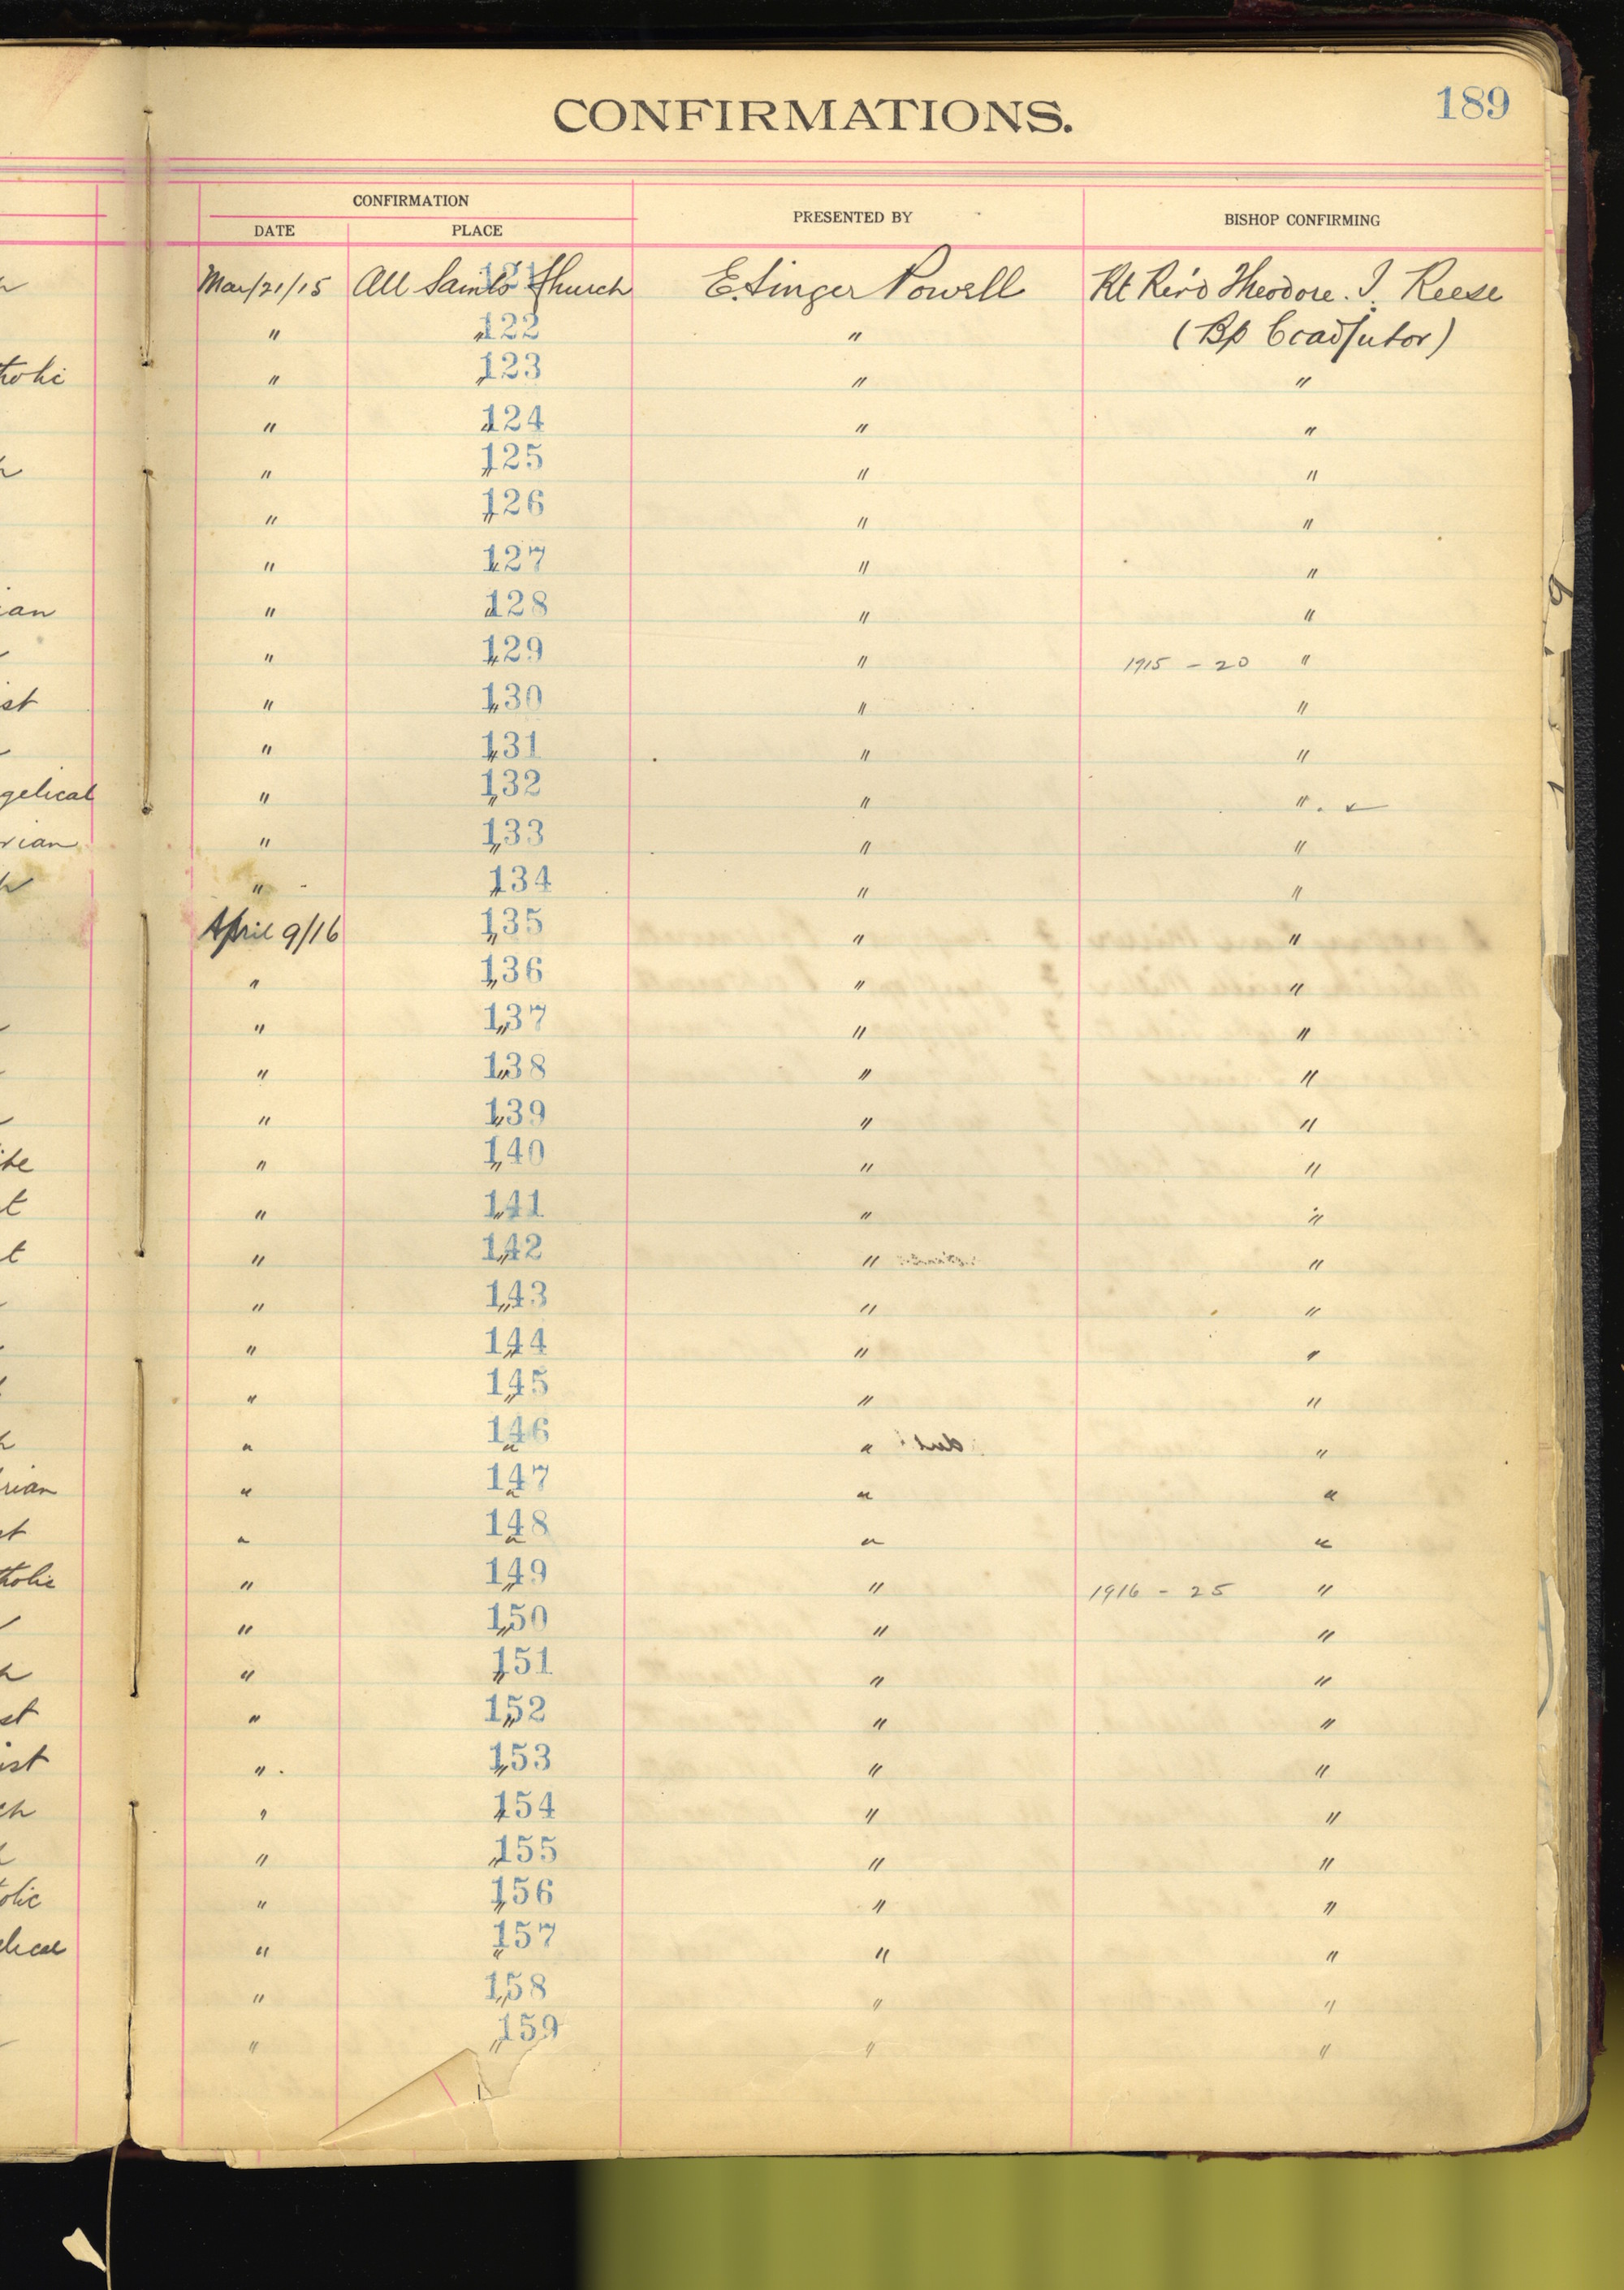 CONFIRMATIONS. 189
CONFIRMATION PRESENTED BY BISHOP CONFIRMING
DATE PLACE
Mar/21/15 All Saints Church 121 E. Singer Powell Rt Rev'd Theodore. I. Reese
" 122 " " (Bp Coadjutor)
tholic " 123 " " "
" 124 " " "
" 125 " " "
" 126 " " "
" 127 " " "
ian " 128 " " "
" 129 " " 1915 - 20 "
st " 130 " " "
" 131 " " "
gelical " 132 " " "
rian " 133 " " "
" 134 " " "
April 9/16 135 " " "
" 136 " " "
" 137 " " "
" 138 " " "
" 139 " " "
ite " 140 " " "
t " 141 " " "
t " 142 " " "
" 143 " " "
" 144 " " "
" 145 " " "
" 146 " " "
rian " 147 " " "
st " 148 " " "
tholic " 149 " " 1916 - 25 "
" 150 " " "
" 151 " " "
st " 152 " " "
ist " 153 " " "
ch " 154 " " "
" 155 " " "
olic " 156 " " "
lical " 157 " " "
" 158 " " "
" 159 " " "